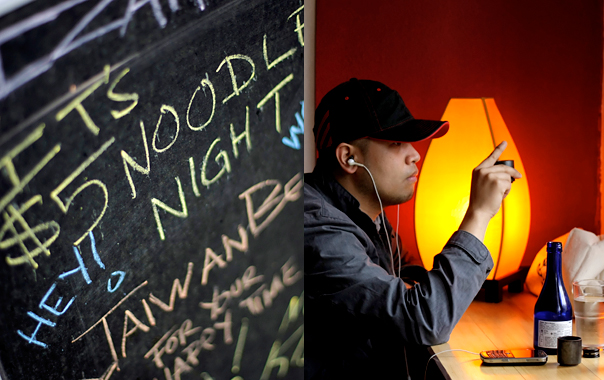 IT'S
$5 NOODLE
NIGHT
HEY!
TAIWAN BE
FOR YOUR
HAPPY TIME